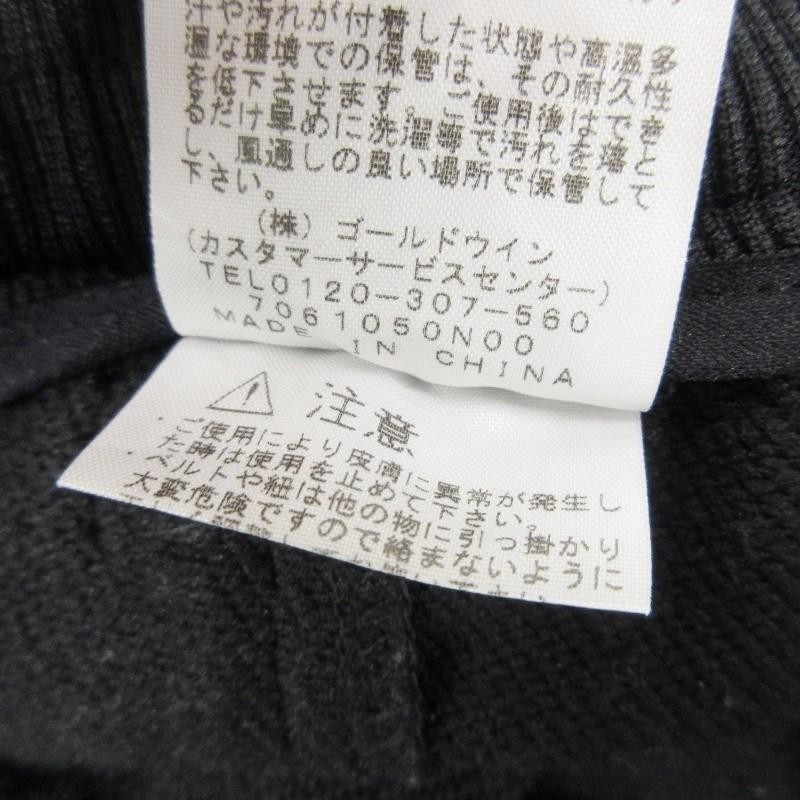 汗や汚れが付着した状態や高温多
湿な環境での保管は、その耐久性を
を低下させます。ご使用後は
るだけ早めに洗濯等で汚れを落とて
し、風通しの良い場所で保管し
下さい。
(株) ゴールドウイン
(カスタマーサービスセンター)
TEL0120-307-560
7061050N00
MADE IN CHINA
注意
・ご使用により皮膚に異常が発生し
た時は使用を止めて下さい。
・ベルトや紐は他の物に引っ掛かり
大変危険ですので絡まないように